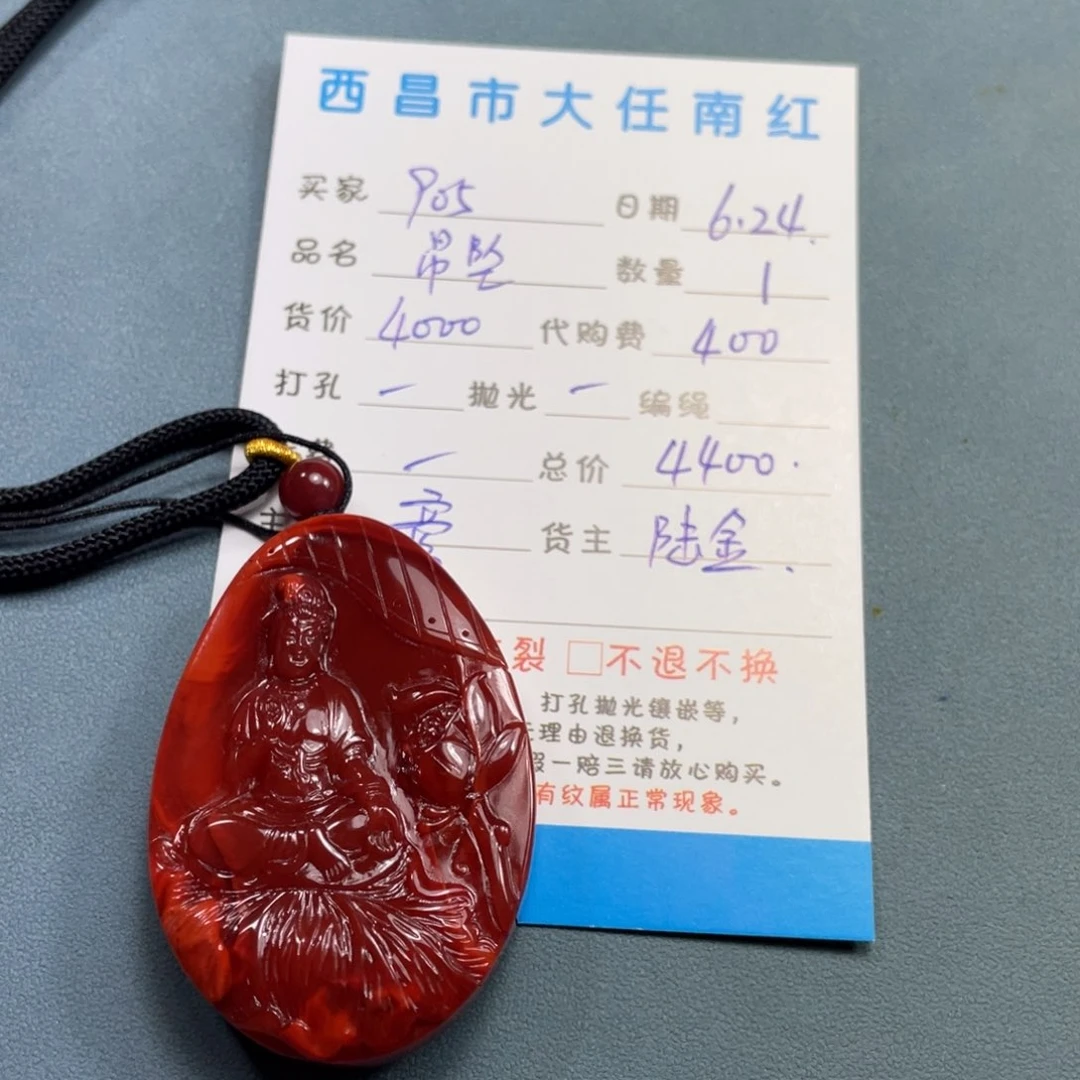 西昌市大任南红
买家 905 日期 6.24.
品名 吊坠 数量 1
货价 4000 代购费 400
打孔 一 抛光 一 编绳
一 总价 4400.
主 货主 陆金.
裂 □不退不换
打孔抛光镶嵌等，
理由退换货，
假一赔三请放心购买。
有纹属正常现象。